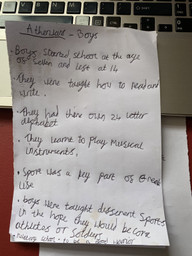 Athenian - Boys
• Boys started school at the age
of seven and left at 14
• They were taught how to read and
write.
• They had there own 24 letter
alphabet
• They learnt to play musical
instruments.
• Sport was a key part of Greek
life
• boys were taught different sports
in the hope they would become
athletes or soldiers